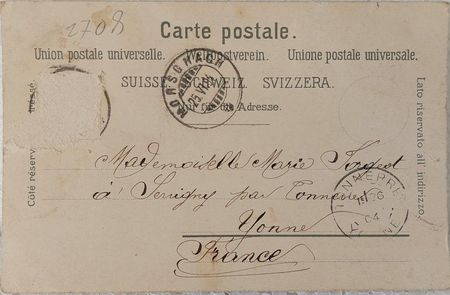 2708
Carte postale.
Union postale universelle. Weltpostverein. Unione postale universale.
SUISSE. SCHWEIZ. SVIZZERA.
Nur für die Adresse.
Côté réservé
Lato riservato all' indirizzo.
MORSCHACH
Mademoiselle Marie
à Serrigny par Tonnerre
Yonne
France
TONNERRE
26
04
YONNE